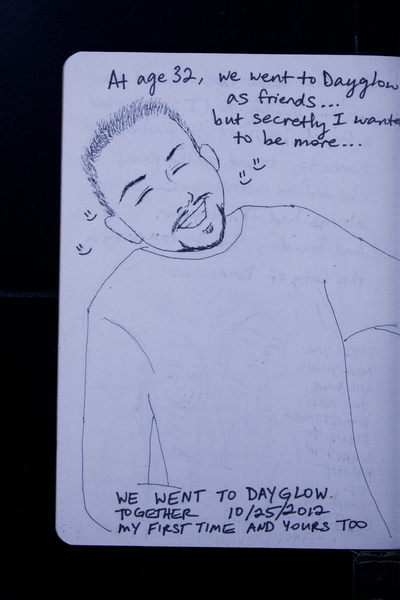 At age 32, we went to Dayglow
as friends...
but secretly I
to be more...
WE WENT TO DAYGLOW.
TOGETHER 10/25/2012
MY FIRST TIME AND YOURS TOO